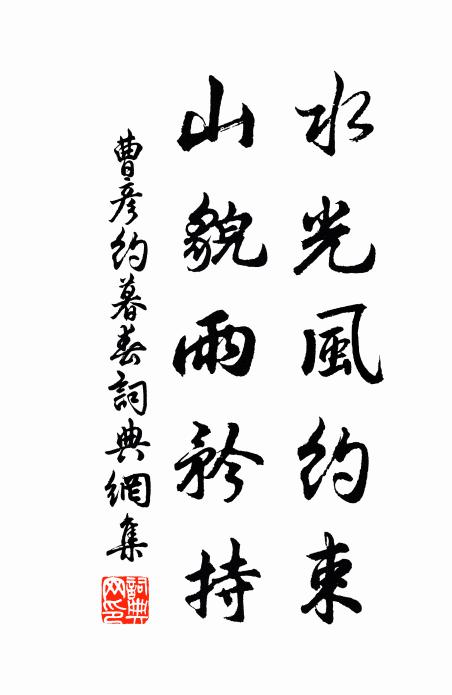 水光風約束
山貌雨矜持
曹彥約暮春詞典網集
詞典網印